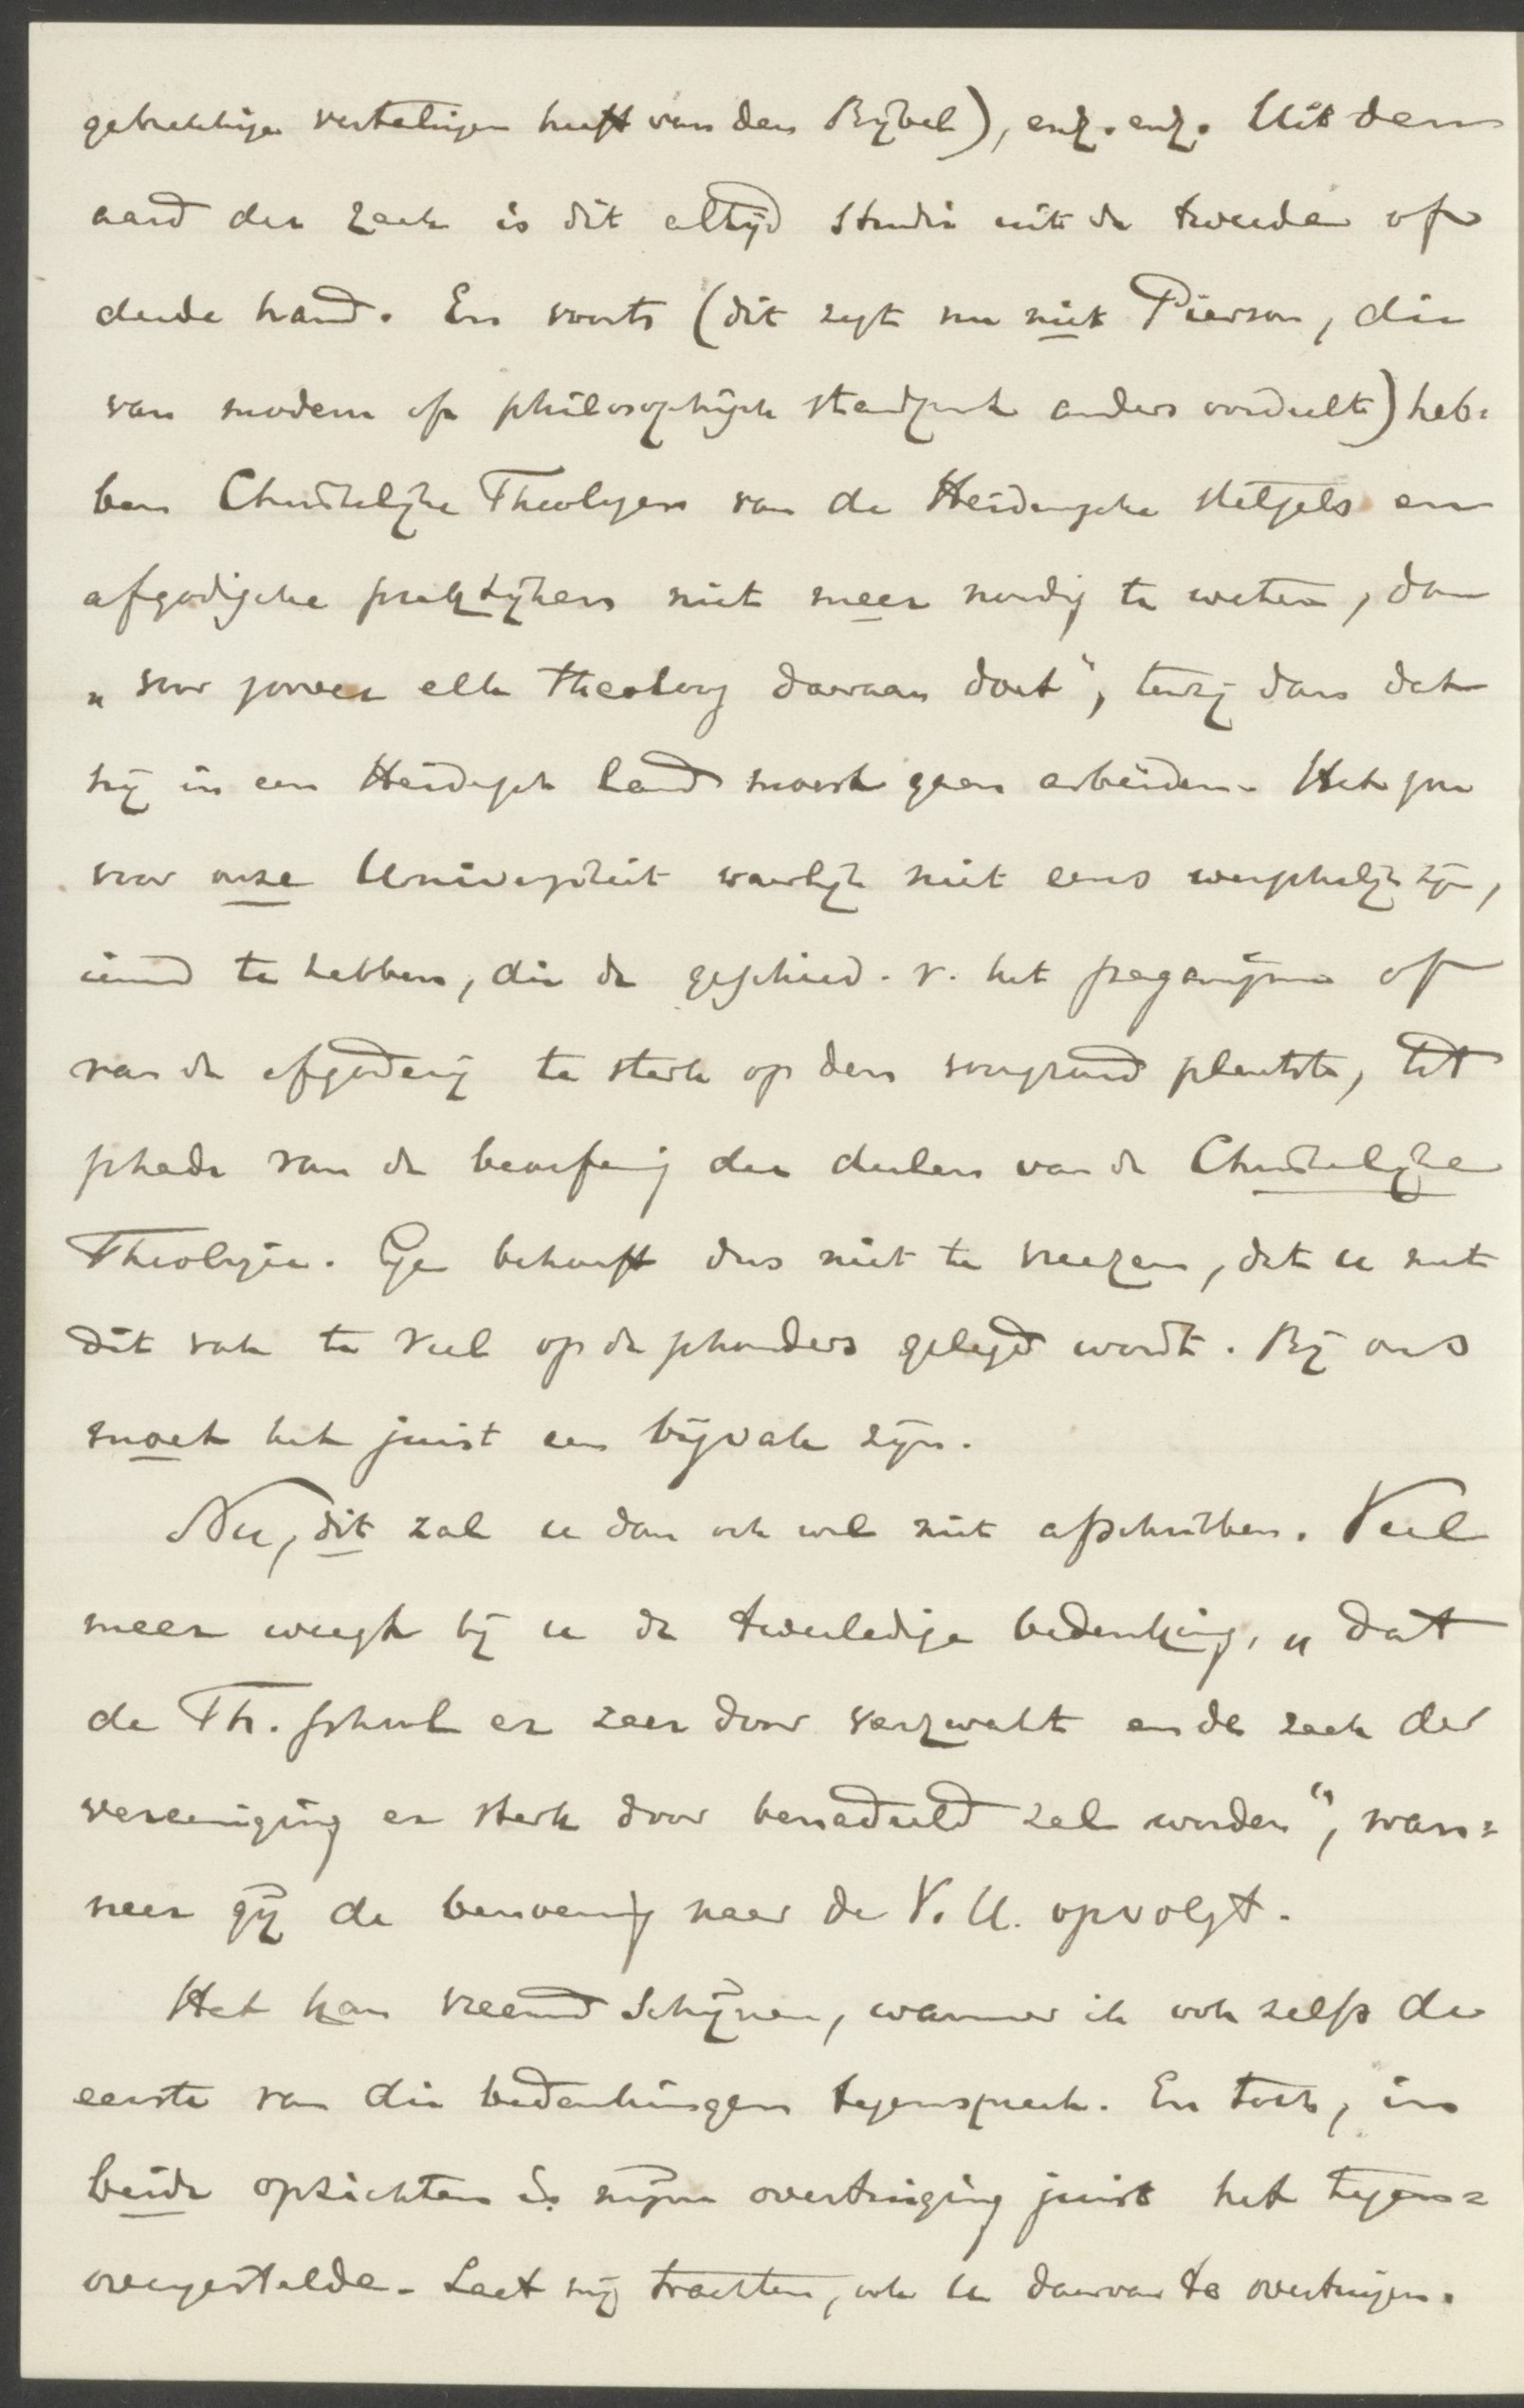 gebrekkige vertalingen heeft van den Bijbel), enz. enz. Uit den
aard der zaak is dit altijd studie uit de tweede of
derde hand. En voorts (dit zegt nu niet Pierson, die
van modern of philosophisch standpunt anders oordeelt) heb-
ben Christelijke Theologen van de Heidensche stelsels en
afgodische praktijken niet meer noodig te weten, dan
„voor zoover elk theoloog daaraan doet", tenzij dan dat
hij in een Heidensch land moest gaan arbeiden. Het zou
voor onze Universiteit waarlijk niet eens wenschelijk zijn,
iemd te hebben, die de geschied. v. het paganisme of
van de afgoderij te sterk op den voorgrond plaatste, tot
schade van de beoefening der deelen van de Christelijke
Theologie. Gij behoeft dus niet te vreezen, dat u met
dit vak te veel op de schouders gelegd wordt. Bij ons
moet het juist een bijvak zijn.
Nu, dit zal u dan ook wel niet afschrikken. Veel
meer weegt bij u de tweeledige bedenking, „dat
de Th. School er zeer door verzwakt en de zaak der
vereeniging er sterk door benadeeld zal worden", wan-
neer gij de benoeming naar de V. U. opvolgt.
Het kan vreemd schijnen, wanneer ik ook zelfs de
eerste van die bedenkingen tegenspreek. En toch, in
beide opzichten is mijne overtuiging juist het tegen-
overgestelde. Laat mij trachten, ook u daarvan te overtuigen.